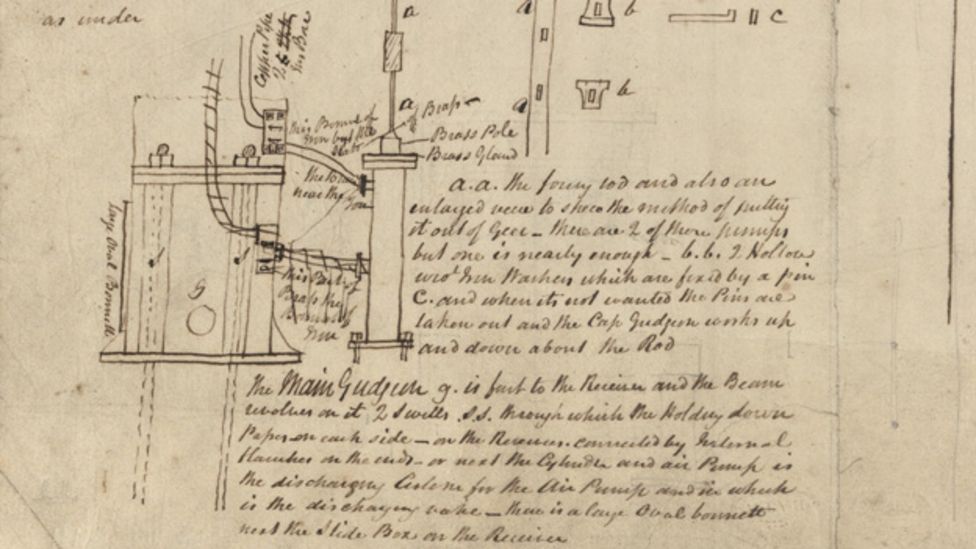 as under
Copper Pipe
2 6
Iron Bore
a
b
c
a
b
a
a
of Brass
Brass Pole
Brass Gland
this Bonnet of
Iron but the
near the
Large Oval Bonnett
s
s
g
this Part of
Brass the
Bonnet of
Iron
a.a. the rod and also an
enlarged to shew the method of putting
it out of Geer – there are 2 of these pumps
but one is nearly enough – b.b. 2 Hollow
wrot Iron Washers which are fixed by a pin
C. and when its not wanted the Pins are
taken out and the Cap Gudgeon works up
and down about the Rod
the Main Gudgeon g. is fast to the Receiver and the Beam
revolves on it 2 swells s.s. through which the Holding down
on each side – on the Receiver connected by Internal
on the ends – or next the Cylinder and air Pump is
the discharging for the Air Pump and in which
is the discharging valve – there is a large Oval bonnett
next the Slide Box on the Receiver